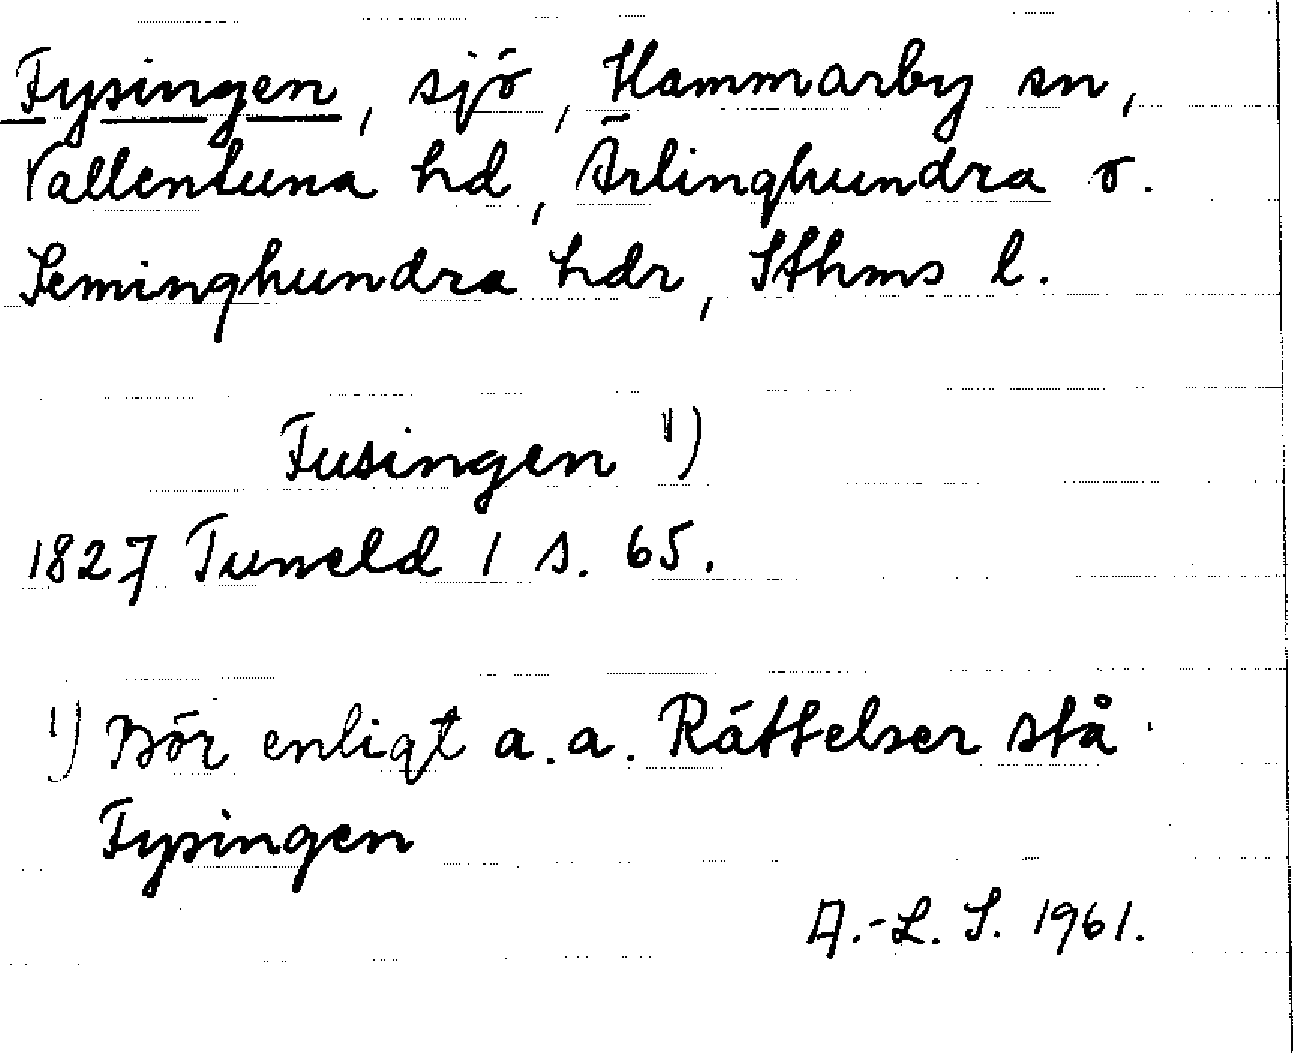 Fysingen, sjö, Hammarby sn,
Vallentuna hd, Ärlinghundra o.
Seminghundra hdr, Sthms l.
Fusingen 1)
1827 Tuneld 1 s. 65.
1) Bör enligt a.a. Rättelser stå
Fysingen
A.-L. S. 1961.